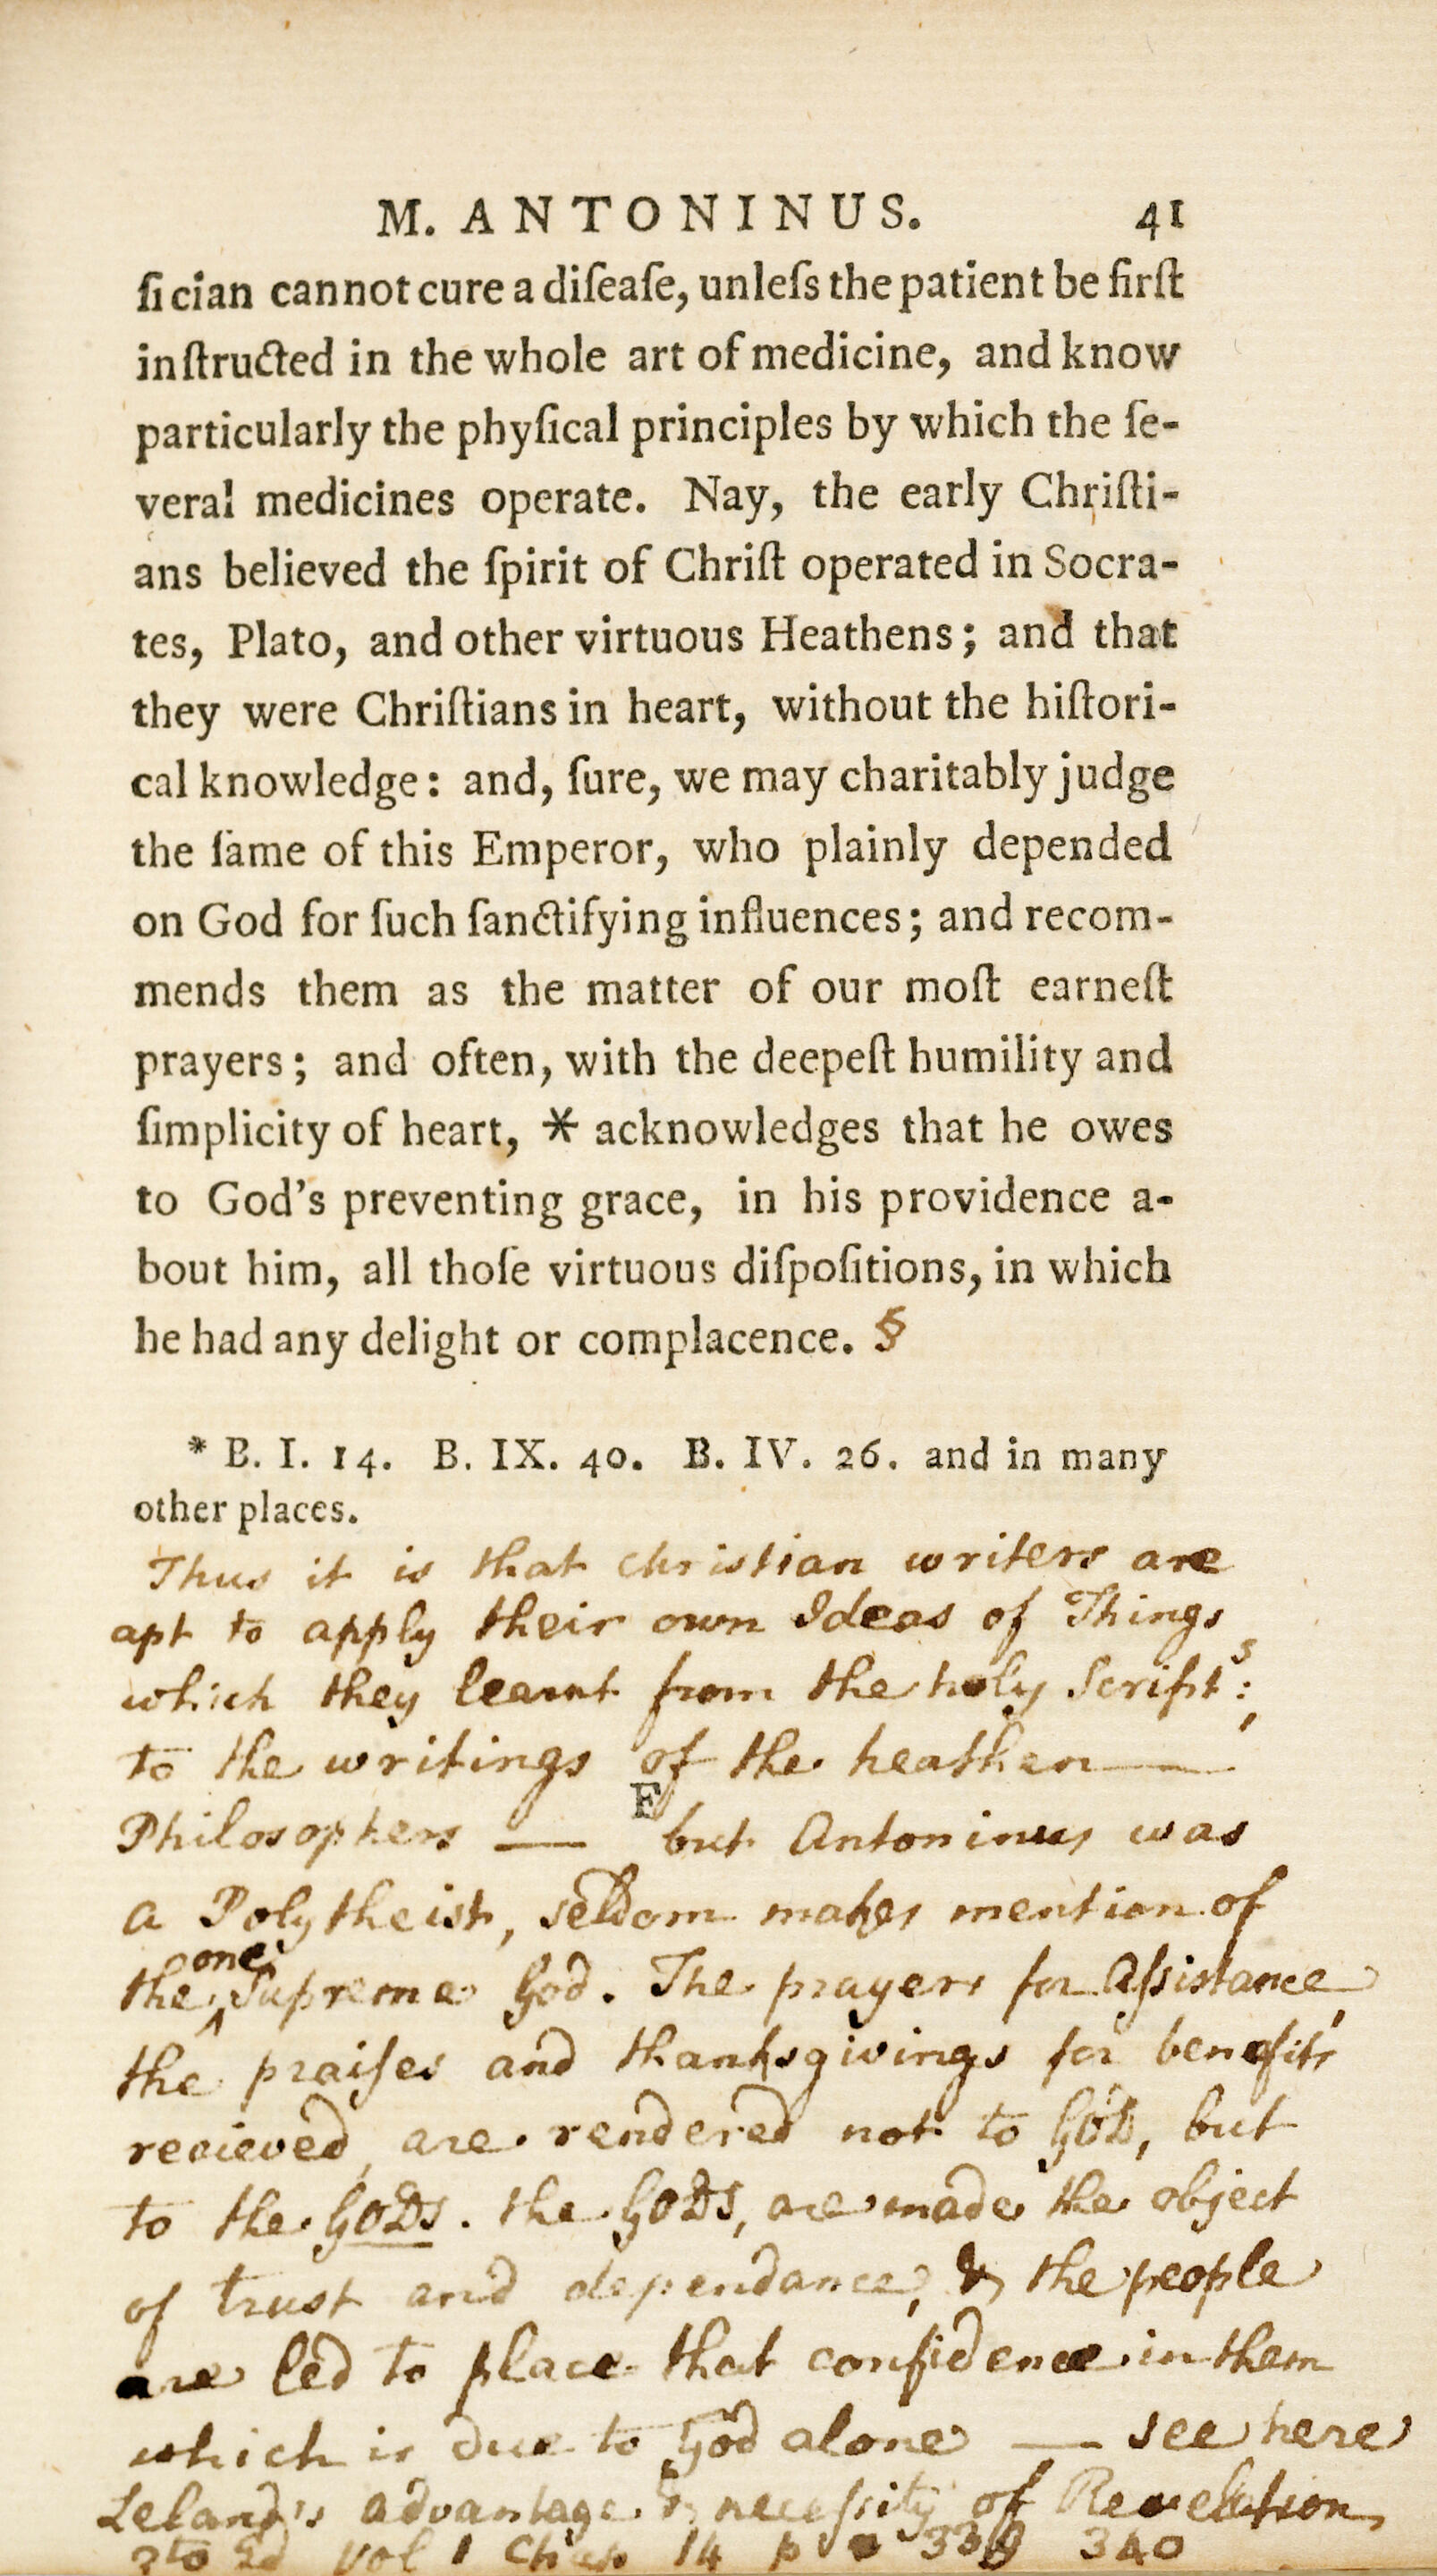 M. ANTONINUS. 41
ſician cannot cure a diſeaſe, unleſs the patient be firſt
inſtructed in the whole art of medicine, and know
particularly the phyſical principles by which the ſe-
veral medicines operate. Nay, the early Chriſti-
ans believed the ſpirit of Chriſt operated in Socra-
tes, Plato, and other virtuous Heathens; and that
they were Chriſtians in heart, without the hiſtori-
cal knowledge: and, ſure, we may charitably judge
the ſame of this Emperor, who plainly depended
on God for ſuch ſanctifying influences; and recom-
mends them as the matter of our moſt earneſt
prayers; and often, with the deepeſt humility and
ſimplicity of heart, * acknowledges that he owes
to God's preventing grace, in his providence a-
bout him, all thoſe virtuous diſpoſitions, in which
he had any delight or complacence. §
* B. I. 14. B. IX. 40. B. IV. 26. and in many
other places.
Thus it is that christian writers are
apt to apply their own Ideas of Things
which they learnt from the holy Script:s,
to the writings of the heathen —
F
Philosophers — but Antoninus was
a Polytheist, seldom makes mention of
one
the ‸ Supreme God. The prayers for aſsistance,
the praiſes and thanksgivings for benefits
recieved, are rendered not to GOD, but
to the GODS. the GODS, are made the object
of trust and dependance, & the people
are led to place that confidence in them
which is due to God alone — see here
Leland's advantage & neceſsity of Revelation,
Ed vol 1 Chap 14 p 340